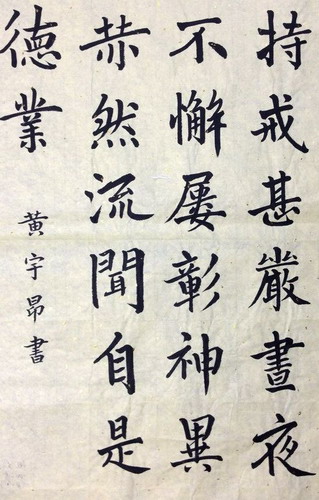 持戒甚嚴晝夜
不懈屢彰神異
赫然流聞自是
德業
黃宇昂書